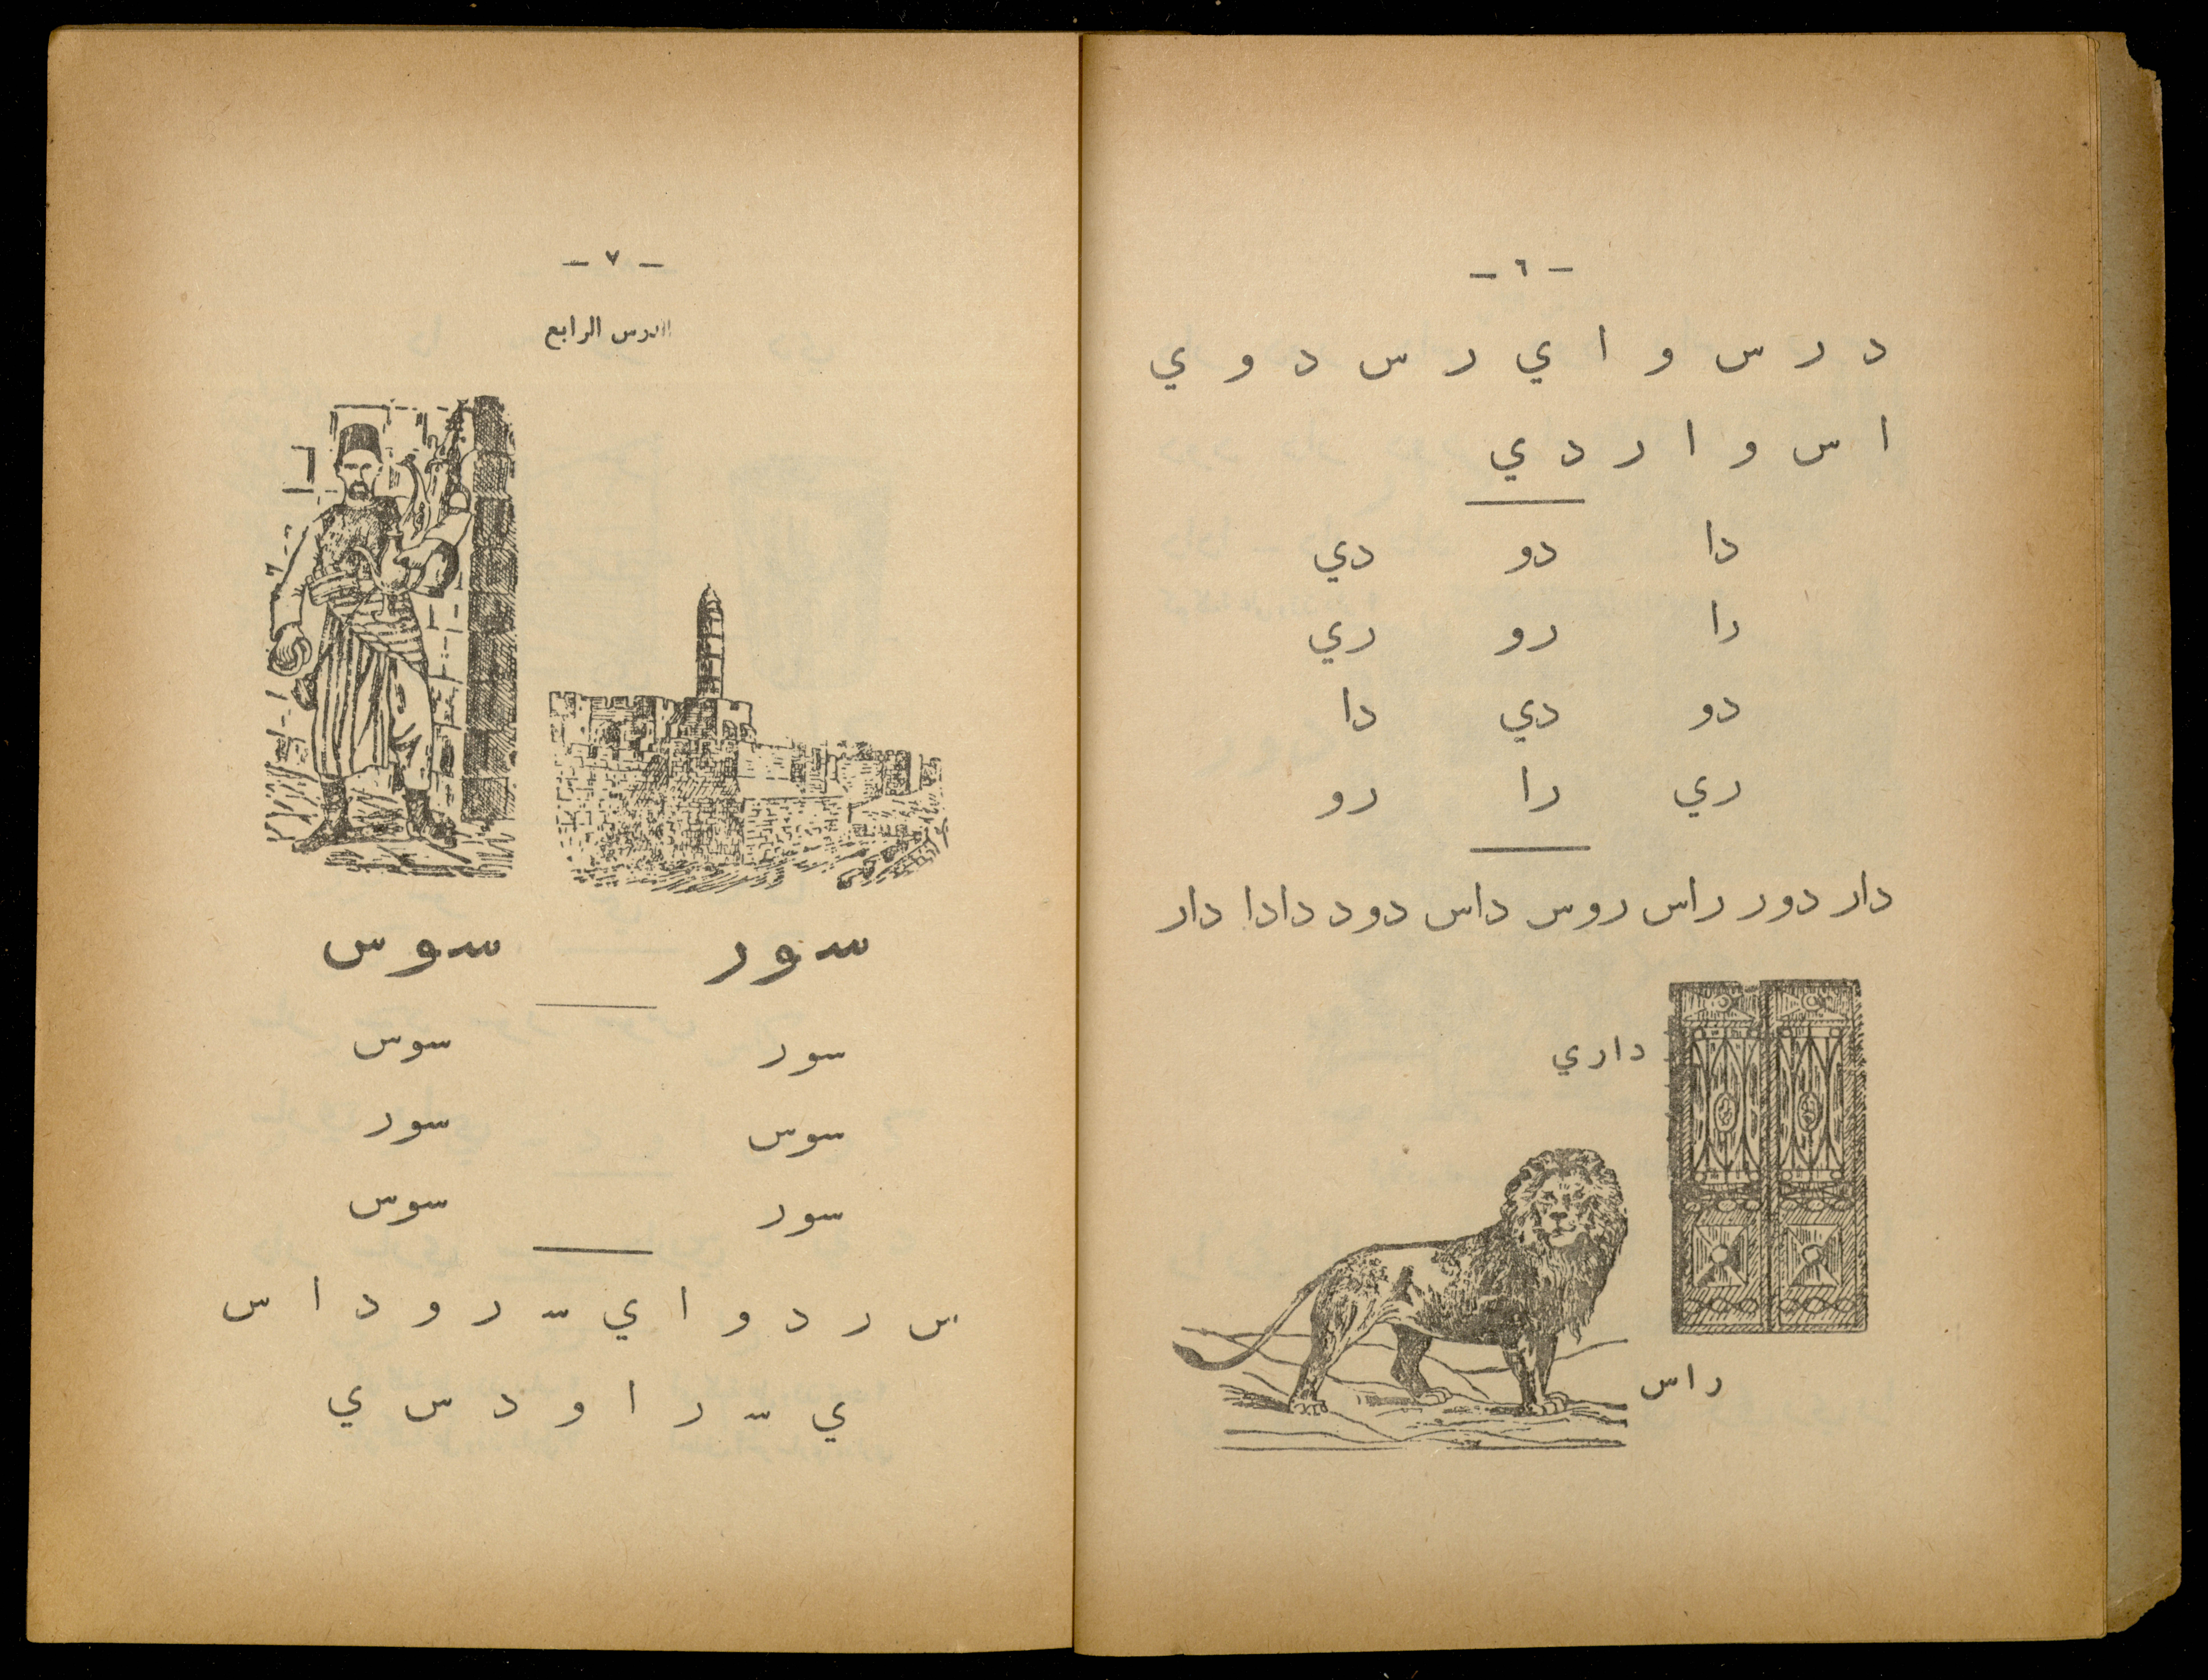 - ٦ -
د ر س و ا ي ر س د و ي
ا س و ا ر د ي
دا دو دي
را رو ري
دو دي دا
ري را رو
دار دور راس روس داس دود دادا دار
داري
راس
- ٧ -
الدرس الرابع
سور سوس
سور سوس
سوس سور
سور سوس
س ر د و ا ي سـ ر و د ا س
ي سـ ر ا و د س ي